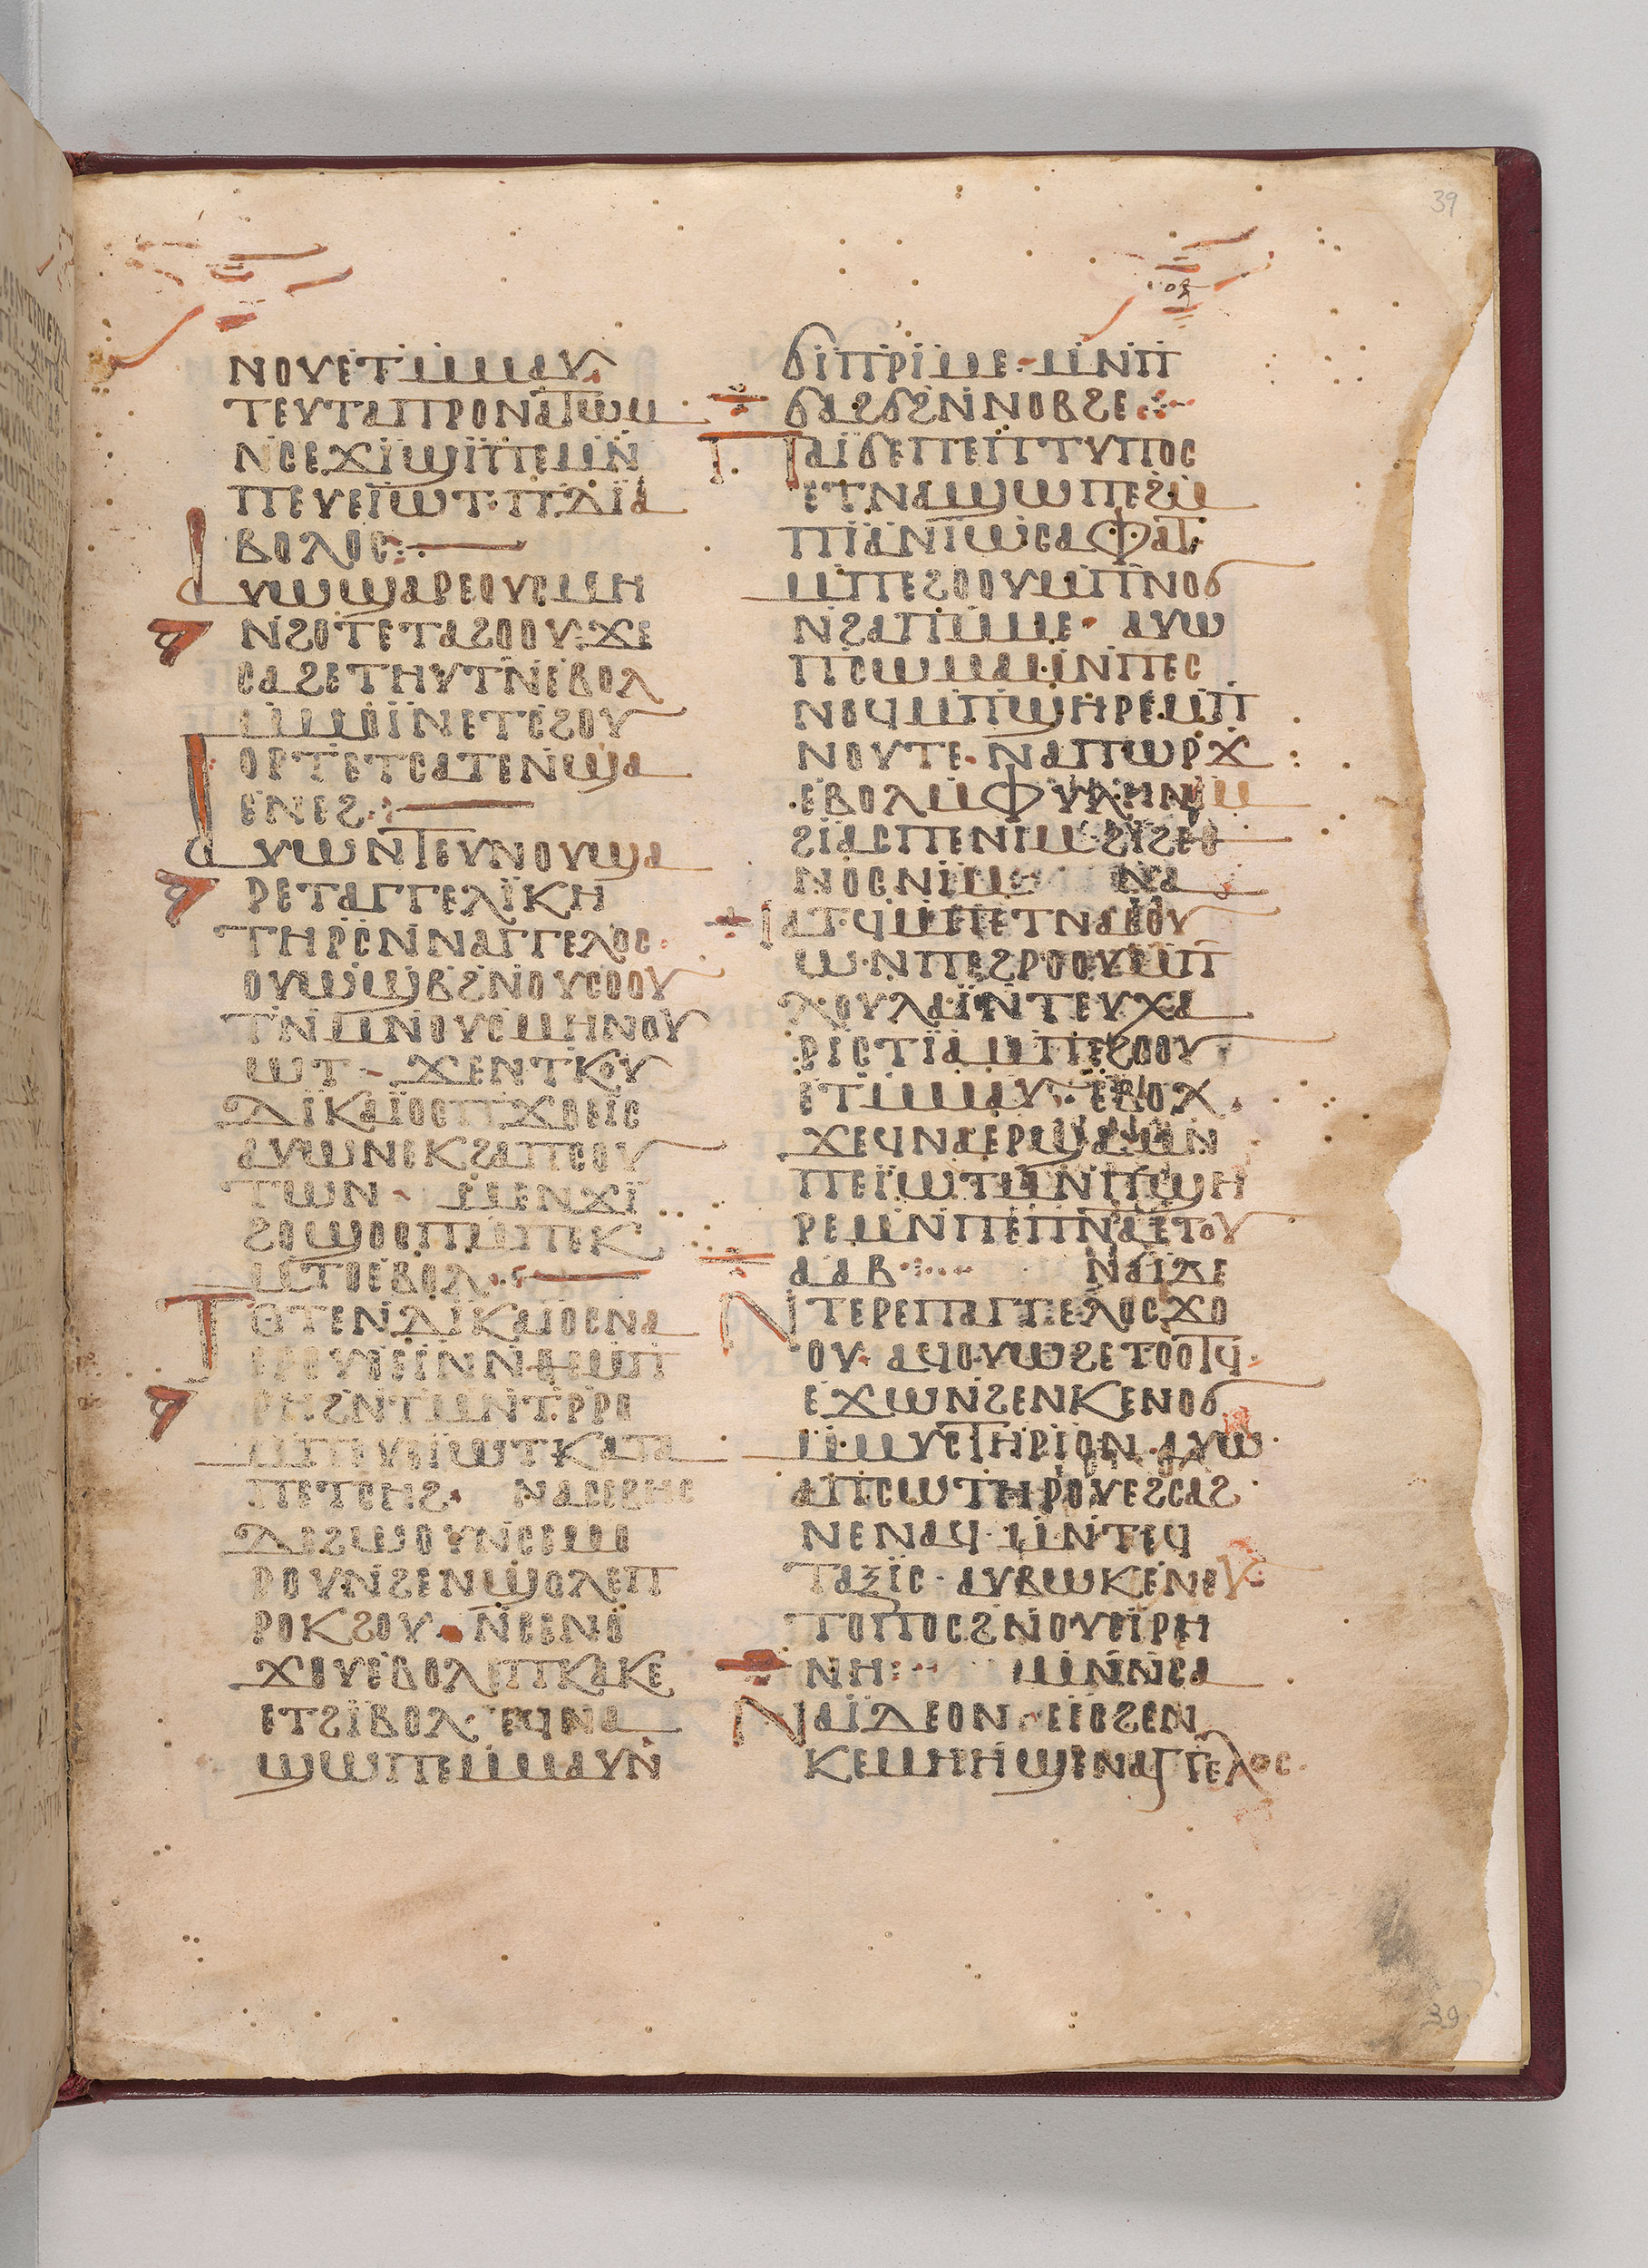 39
ⲛⲟⲩⲉⲧⲙⲙⲁⲩ
ⲧⲉⲩⲧⲁⲡⲣⲟⲛⲁⲧⲱⲙ
ⲛⲥⲉϫⲓϣⲓⲡⲉⲙⲛ
ⲡⲉⲩⲉⲓⲱⲧ· ⲡⲇⲓⲁ
ⲃⲟⲗⲟⲥ:
ⲁⲩⲱϣⲁⲣⲉⲟⲩⲥⲙⲏ
ⲛϩⲟⲧⲉⲧⲁϩⲟⲟⲩ: ϫⲉ
ⲥⲁϩⲉⲧⲏⲩⲧⲛⲉⲃⲟⲗ
ⲙⲙⲟⲓⲛⲉⲧⲥϩⲟⲩ
ⲟⲣⲧⲉⲧⲥⲁⲧⲉⲛϣⲁ
ⲉⲛⲉϩ:
ⲁⲩⲱⲛⲧⲉⲩⲛⲟⲩϣⲁ
ⲣⲉⲧⲁⲅⲅⲉⲗⲓⲕⲏ
ⲧⲏⲣⲥⲛⲛⲁⲅⲅⲉⲗⲟⲥ·
ⲟⲩⲱϣⲃϩⲛⲟⲩⲥⲟⲟⲩ
ⲧⲛⲙⲛⲟⲩⲥⲙⲏⲛⲟⲩ
ⲱⲧ– ϫⲉⲛⲧⲕⲟⲩ
ⲇⲓⲕⲁⲓⲟⲥⲡϫⲟⲉⲓⲥ
ⲁⲩⲱⲛⲉⲕϩⲁⲡⲥⲟⲩ
ⲧⲱⲛ– ⲙⲉⲛϫⲓ
ϩⲟϣⲟⲟⲡⲙⲡⲉⲕ
ⲙⲧⲟⲉⲃⲟⲗ·
ⲧⲟⲧⲉⲛⲇⲓⲕⲁⲓⲟⲥⲛⲁ
ⲉⲣⲟⲩⲟⲉⲓⲛⲛⲑⲉⲙⲡ
ⲣⲏϩⲛⲧⲙⲛⲧⲣⲣⲟ
ⲙⲡⲉⲩⲉⲓⲱⲧⲕⲁⲧⲁ
ⲡⲉⲧⲥⲏϩ· ⲛⲁⲥⲉⲃⲏⲥ
ⲇⲉϩⲱⲟⲩⲛⲥⲉⲙⲟ
ⲣⲟⲩⲛϩⲉⲛϣⲟⲗⲉⲡ
ⲣⲟⲕϩⲟⲩ· ⲛⲥⲉⲛⲟ
ϫⲟⲩⲉⲃⲟⲗⲉⲡⲕⲁⲕⲉ
ⲉⲧϩⲓⲃⲟⲗ· ⲉϥⲛⲁ
ϣⲱⲡⲉⲙⲙⲁⲩⲛ
ϭⲓⲡⲣⲓⲙⲉ– ⲙⲛⲡ
ϭⲁϩϭϩⲛⲛⲟⲃϩⲉ:
ⲡⲁⲓϭⲉⲡⲉⲡⲧⲩⲡⲟⲥ
ⲉⲧⲛⲁϣⲱⲡⲉϩⲙ
ⲡⲓⲁⲛⲓⲱⲥⲁⲫⲁⲧ
ⲙⲡⲉϩⲟⲟⲩⲙⲡⲛⲟϭ
ⲛϩⲁⲡⲙⲙⲉ· ⲁⲩⲱ
ⲡⲥⲱⲙⲁ· ⲙⲛⲡⲉⲥ
ⲛⲟϥⲙⲡϣⲏⲣⲉⲙⲡ
ⲛⲟⲩⲧⲉ· ⲛⲁⲡⲱⲣϫ
ⲉⲃⲟⲗⲙⲫⲩⲗⲏⲛⲓⲙ
ϩⲓⲁⲥⲡⲉⲛⲓⲙ· ϩⲓϩⲉⲑ
ⲛⲟⲥⲛⲓⲙ ⲛⲁ
ⲓⲁⲧϥⲙⲡⲉⲧⲛⲁⲃⲟⲩ
ⲱ·ⲛⲡⲉϩⲣⲟⲟⲩⲙⲡ
ⲗⲟⲩⲗⲁⲓⲛⲧⲉⲩⲭⲁ
ⲣⲓⲥⲧⲓⲁⲙⲡⲉϩⲟⲟⲩ
ⲉⲧⲙⲙⲁⲩ·ⲉⲃⲟⲗ
ϫⲉϥⲛⲁⲉⲣϣⲁⲙⲛ
ⲡⲉⲓⲱⲧⲙⲛⲡϣⲏ
ⲣⲉⲙⲛⲡⲉⲡⲛⲁⲉⲧⲟⲩ
ⲁⲁⲃ·:··· ⲛⲁⲓⲇⲉ
ⲛⲧⲉⲣⲉⲡⲁⲅⲅⲉⲗⲟⲥϫⲟ
ⲟⲩ· ⲁϥⲟⲩⲱϩⲉⲧⲟⲟⲧϥ·
ⲉϫⲱⲛϩⲉⲛⲕⲉⲛⲟϭ
ⲙⲙⲩⲥⲧⲏⲣⲓⲟⲛ·ⲁⲩⲱ
ⲁⲡⲥⲱⲧⲏⲣⲟⲩⲉϩⲥⲁϩ
ⲛⲉⲛⲁϥ· ⲙⲛⲧⲉϥ
ⲧⲁⲝⲓⲥ· ⲁⲩⲃⲱⲕⲉⲛⲉⲩ
ⲧⲟⲡⲟⲥϩⲛⲟⲩⲉⲓⲣⲏ
ⲛⲏ:·· ⲙⲛⲛⲥⲁ
ⲛⲁⲓⲇⲉⲟⲛ· ⲉⲓⲥϩⲉⲛ
ⲕⲉⲙⲏⲏϣⲉⲛⲁⲅⲅⲉⲗⲟⲥ·
39